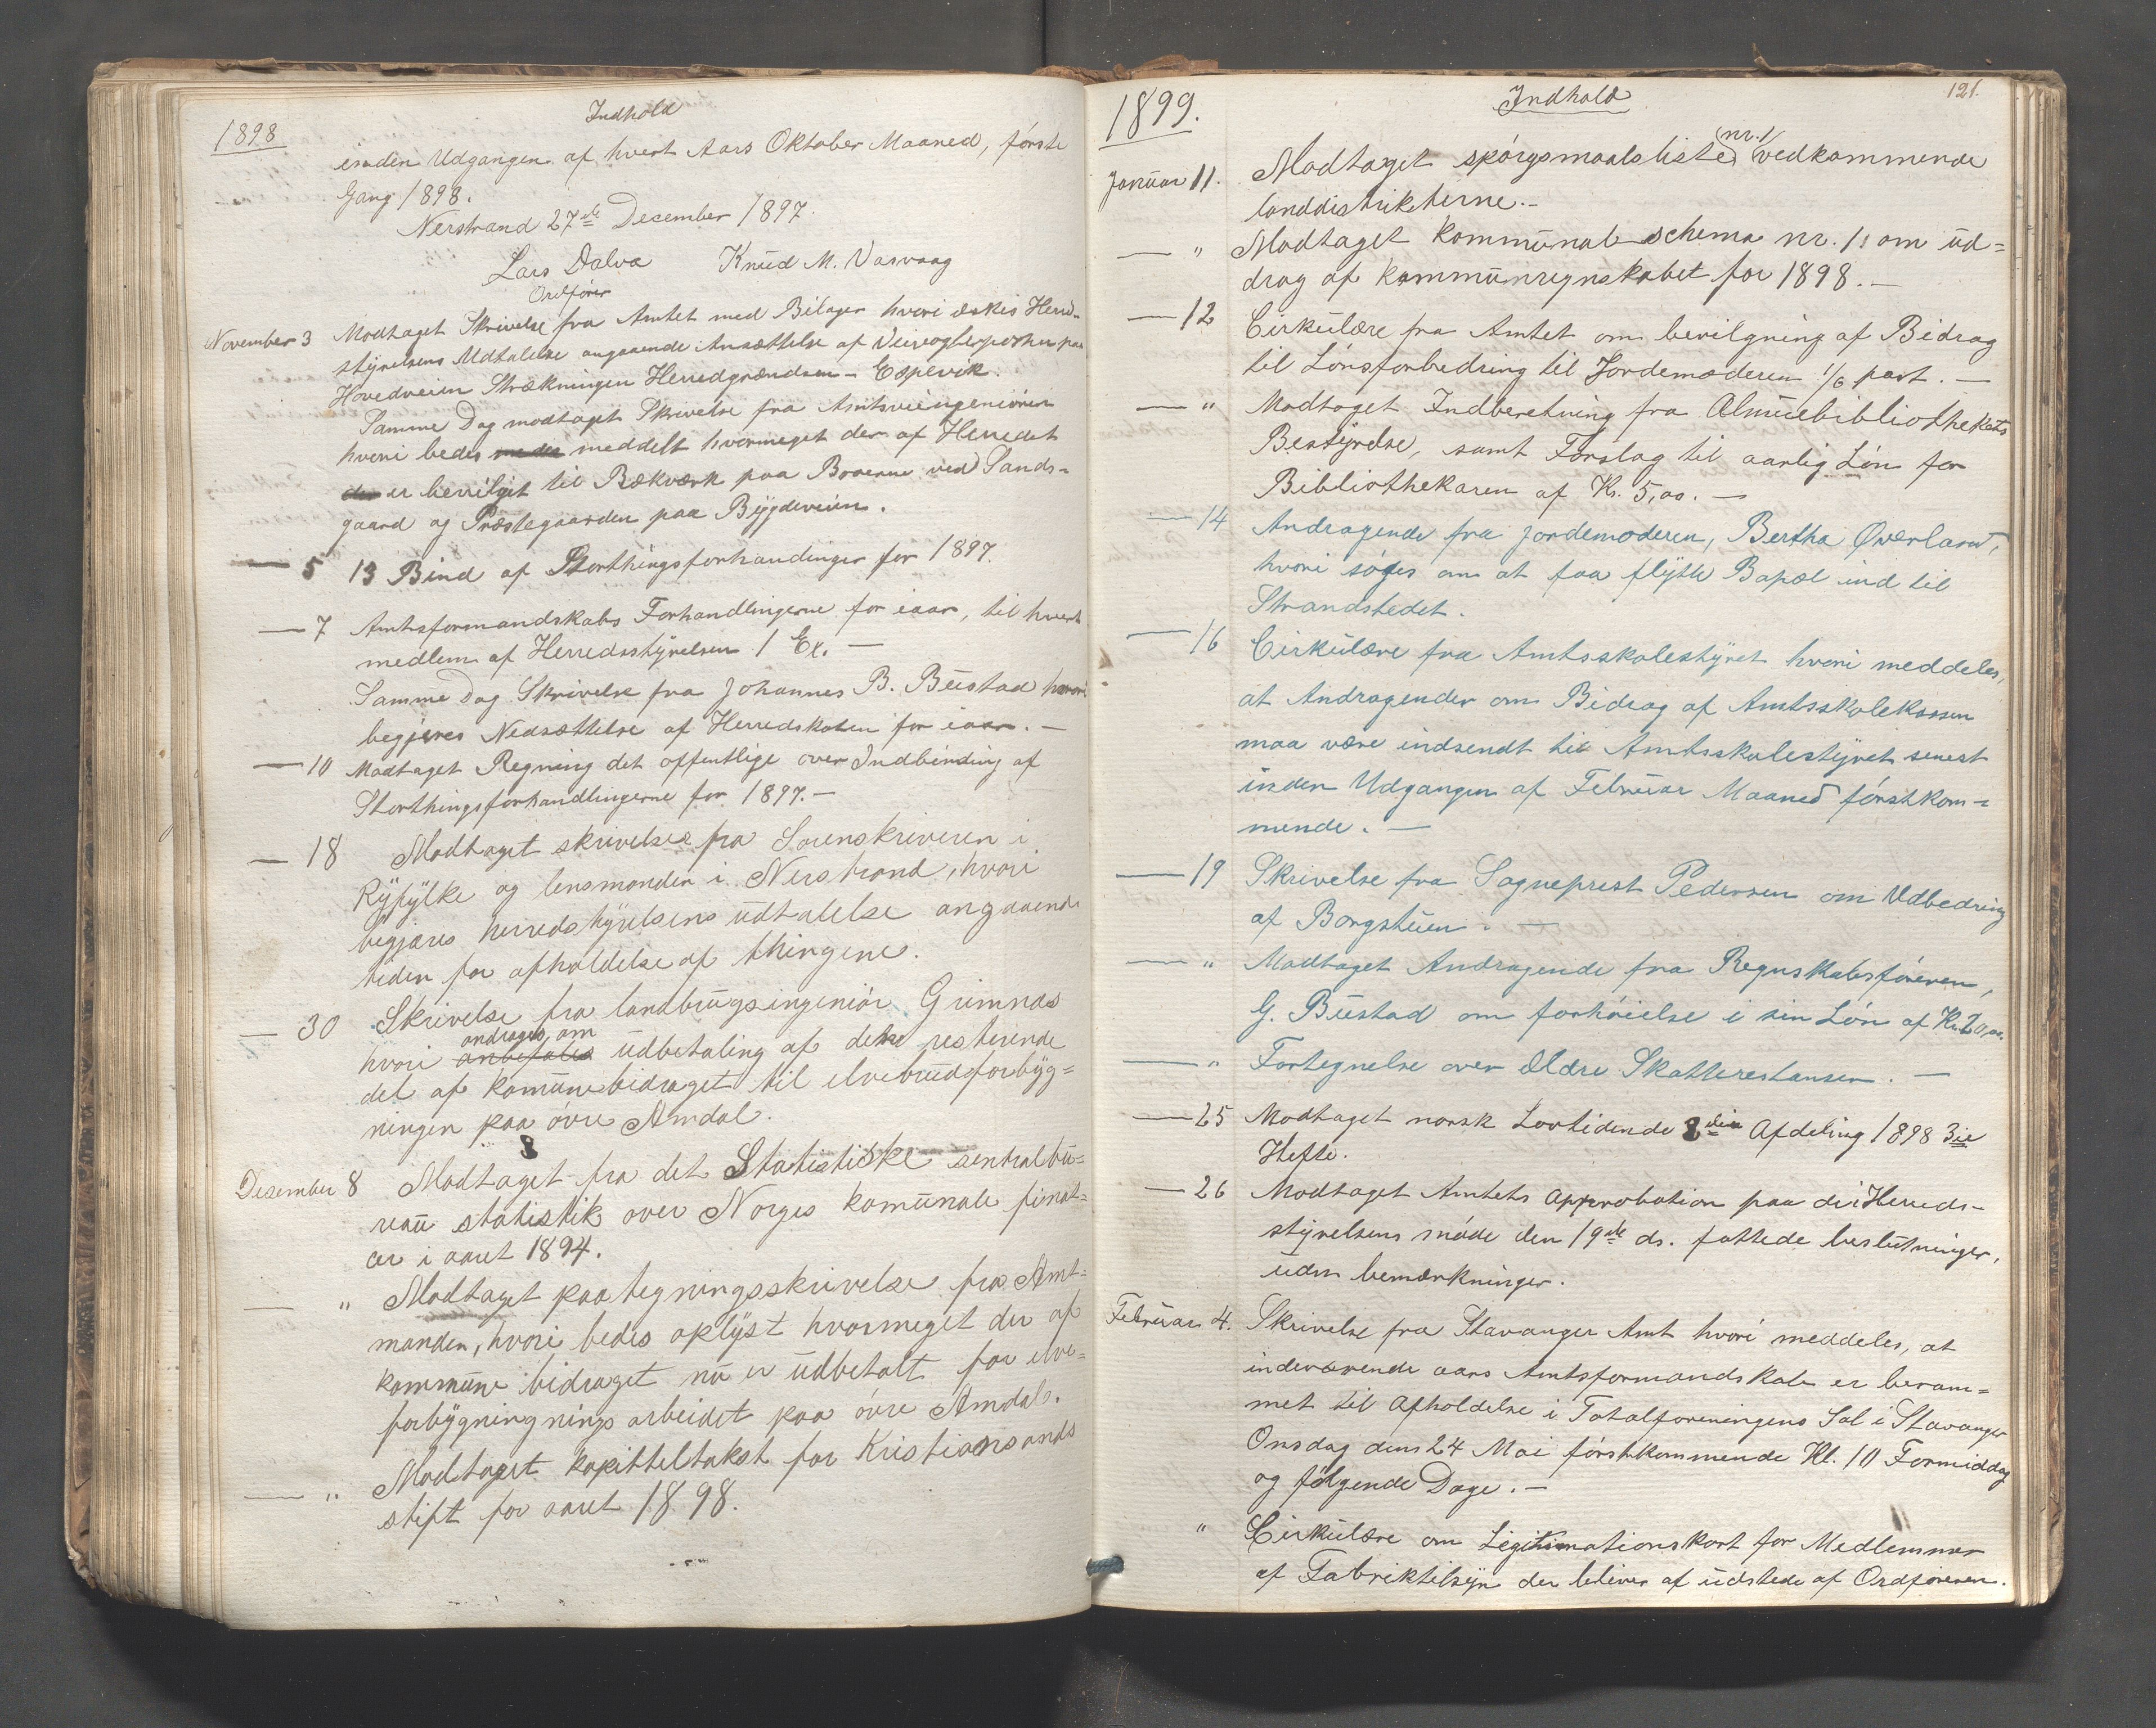 Indhold
1898
inden Udgangen af hvert Aars Oktober Maaned, første
Gang 1898.
Nerstrand 27de December 1897.
Lars Dalva Knud M. Vasvaag
Ordfører
November 3 Modtaget Skrivelse fra Amtet med Bilager hvori æskes Herred-
styrelsens Udtalelse angaaende Ansættelse af Veivogterposten paa
Hovedveien Strækningen Herredgrændsen - Espevik.
Samme Dag modtaget Skrivelse fra Amtsveiingeniøren
hvori bedes meddelt hvormeget der af Herredet
er bevilget til Rækværk paa Broerne ved Sands-
gaard og Præstegaarden paa Bygdeveien.
— 5 13 Bind af Storthingsforhandinger for 1897.
— 7 Amtsformandskabs Forhandlingerne for iaar, til hvert
medlem af Herredsstyrelsen 1 Ex. —
Samme Dag Skrivelse fra Johannes B. Bustad hvori
begjæres Nedsættelse af Herredskaten for iaar. —
— 10 Modtaget Regning det offentlige over Indbinding af
Storthingsforhandlingerne for 1897. —
— 18 Modtaget skrivelse fra Sorenskriveren i
Ryfylke og lensmanden i Nerstrand, hvori
begjæres herredstyrelsens udtalelse angaaende
tiden for afholdelse af thingene.
— 30 Skrivelse fra landbrugsingeniør Grimnæs
andrages om
hvori anbefales udbetaling af dette resterende
del af komunebidraget til elvebrudforbyg=
ningen paa øvre Amdal.
8
Desember 8 Modtaget fra det Statistiske sentralbu=
reau statistik over Norges komunale finat=
er i aaret 1894.
— " Modtaget paategningsskrivelse fra Amt=
manden, hvori bedes oplyst hvormeget der af
kommune bidraget nu er udbetalt for elve=
forbygningnings arbeidet paa øvre Amdal.
— " Modtaget kapitteltakst for Kristiansands
stift for aaret 1898.
1899. Indhold 121.
nr. 1
Januar 11. Modtaget spørgsmaalsliste vedkommende
landdistrikterne. -
— " Modtaget kommunal schema nr. 1 om ud=
drag af kommunregnskabet for 1898. —
— 12 Cirkulære fra Amtet om bevilgning af Bidrag
til Lønsforbedring til Jordemoderen 1/6 part. —
— " Modtaget Indberetning fra Almuebibliothekets
Bestyrelse, samt Forslag til aarlig Løn for
Bibliothekaren af Kr. 5,00. —
— 14 Andragende fra jordemoderen, Bertha Øverland,
hvori søges om at faa flytte Bopæl ind til
Strandstedet.
— 16 Cirkulære fra Amtsskolestyret hvori meddeles,
at Andragender om Bidrag af Amtsskolekassen
maa være indsendt til Amtsskolestyret senest
inden Udgangen af Februar Maaned førstkom-
mende. —
— 19 Skrivelse fra Sogneprest Pedersen om Udbedring
af Borgstuen. —
— " Modtaget Andragende fra Regnskabsføreren,
G. Bustad om forhøielse i sin Løn af Kr.
— " Fortegnelse over Ældre Skatterestanser. —
— 25 Modtaget norsk Lovtidende 2den Afdeling 1898 3ie
Hefte.
— 26 Modtaget Amtets Approbation paa de i Herreds-
styrelsens møde den 19de ds. fattede beslutninger,
uden bemærkninger.
Februar 4. Skrivelse fra Stavanger Amt hvori meddeles, at
indeværende aars Amtsformandskab er beram=
met til Afholdelse i Totalforeningens Sal i Stavanger
Onsdag dens 24 Mai førstkommende Kl. 10 Formiddag
og følgende Dage. —
" Cirkulære om Legitimationskort for Medlemmer
af Fabriktilsyn der bliver af udstede af Ordføreren.